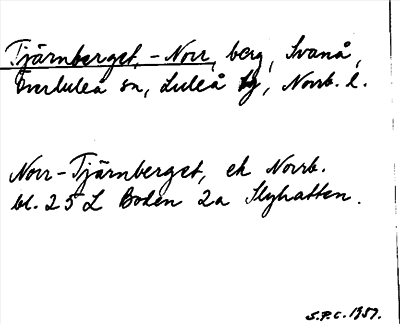 Tjärnberget, -Norr, berg, Svanå,
Överluleå sn, Luleå tg, Norrb. l.
Norr-Tjärnberget, ek Norrb.
bl. 25 L Boden 2a Slyhatten.
S.P.C. 1957.